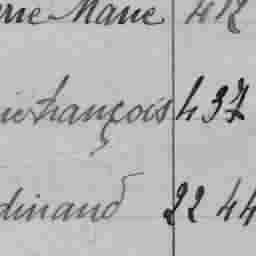 rie Marie 412
ie françois 437
dinand 22 44